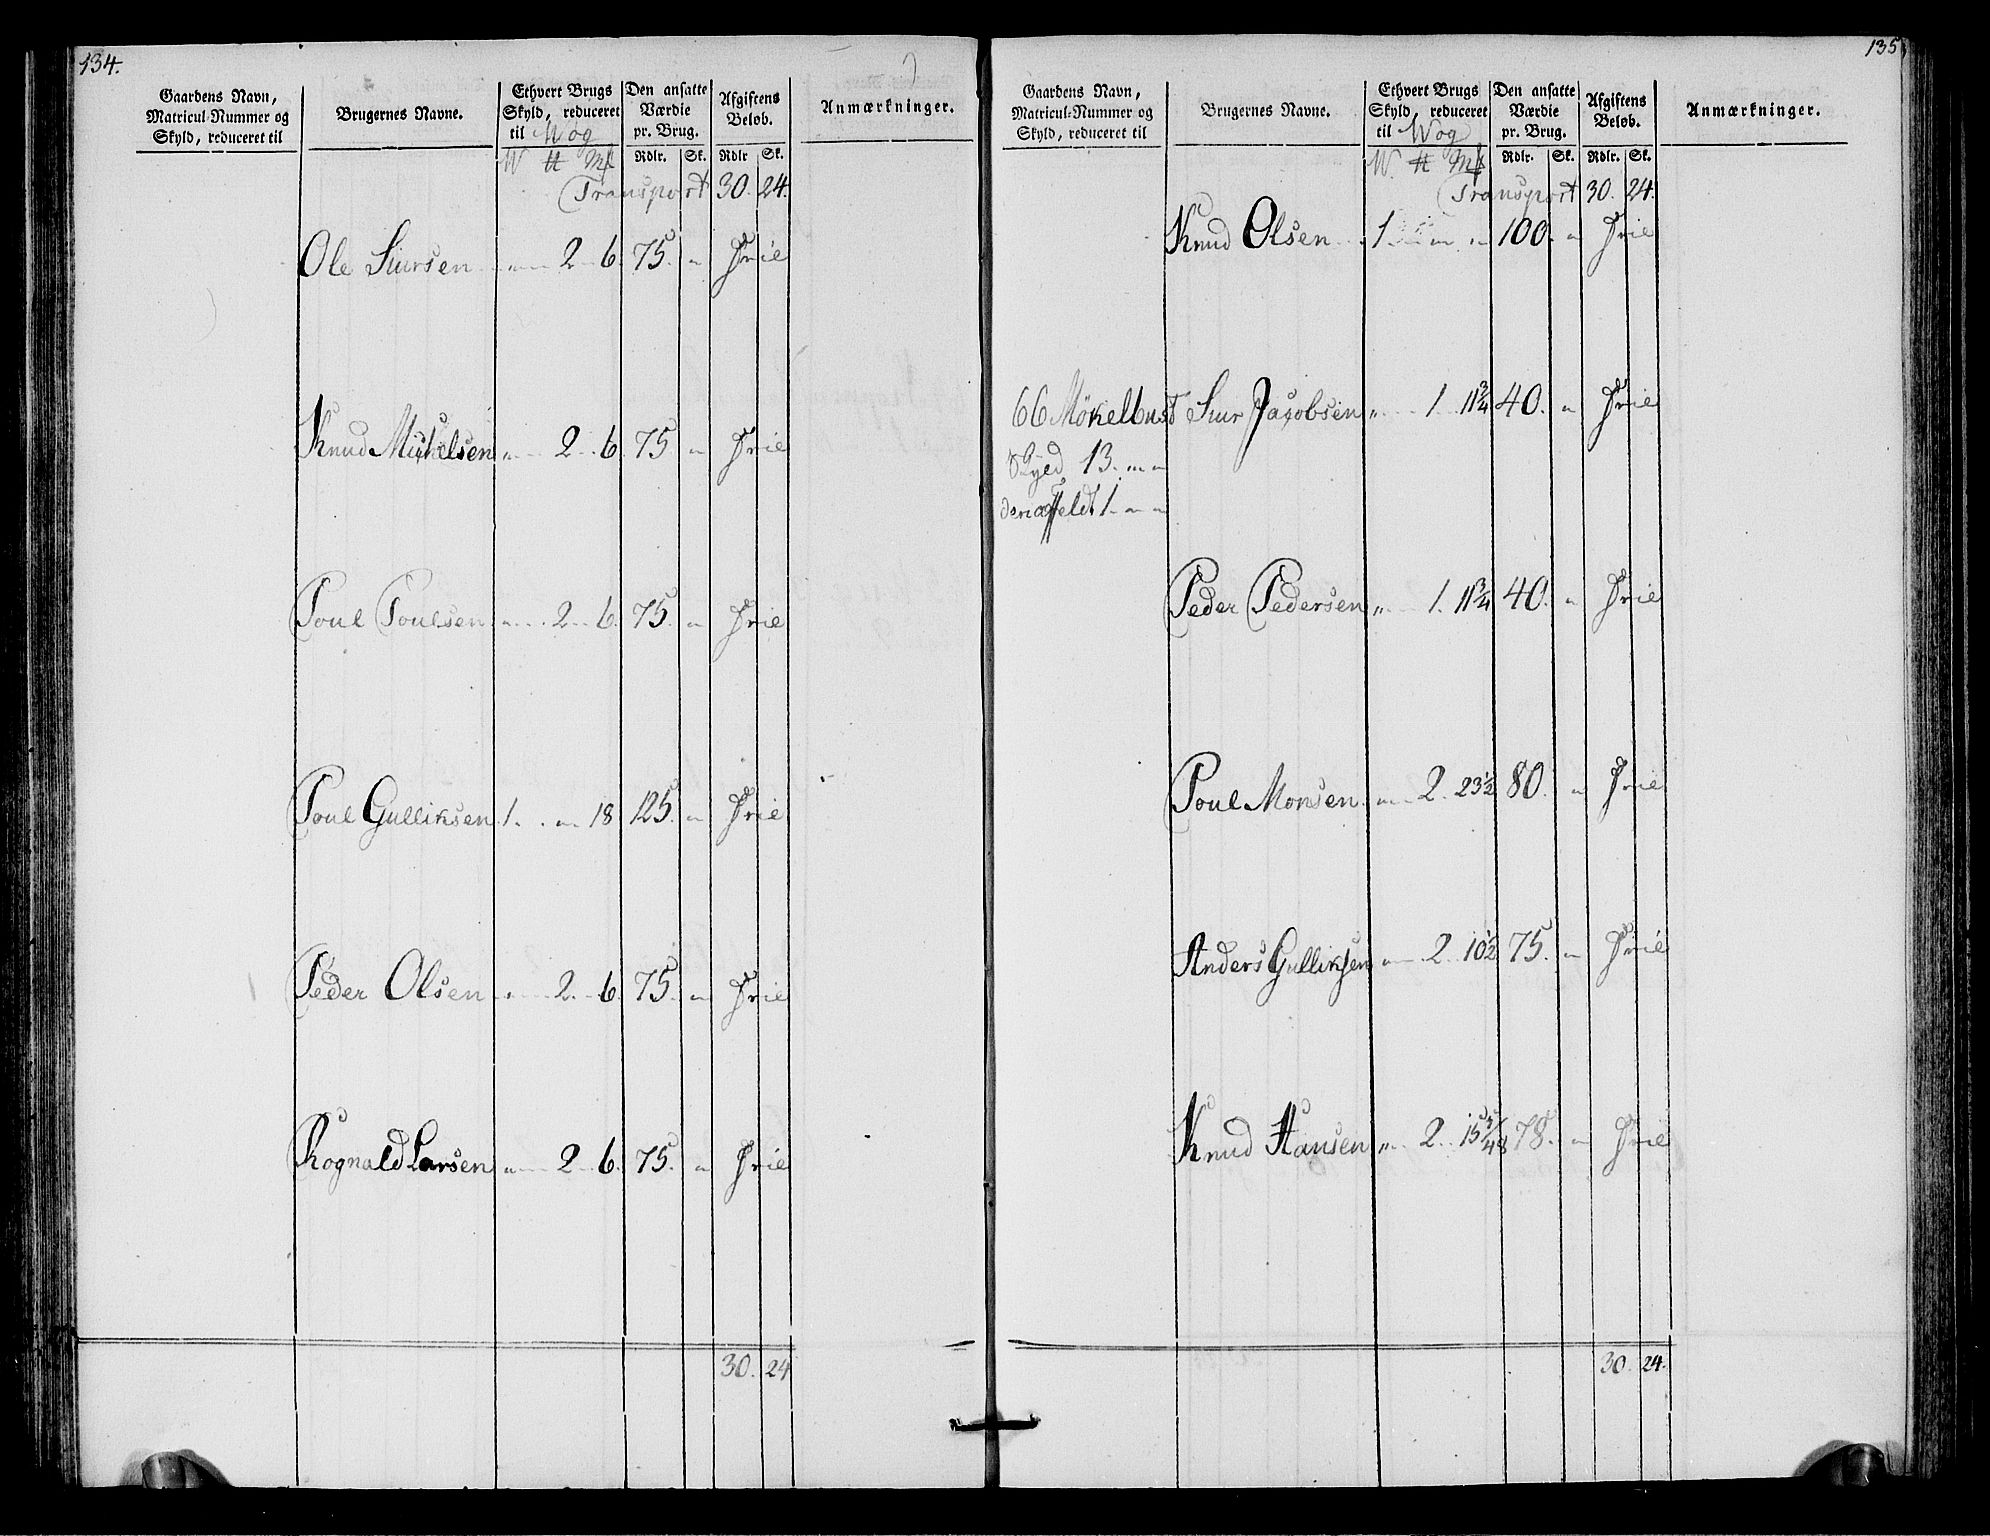 134.
Gaardens Navn, Matricul-Nummer og Skyld, reduceret til
Brugernes Navne.
Ethvert Brugs Skyld, reduceret til Wog
W ℔ Mk
Den ansatte Værdie pr. Brug.
Rdlr. Sk.
Afgiftens Beløb.
Rdlr Sk.
Anmærkninger.
Transport 30. 24.
Ole Siursen 2 6. 75. " Frie
Knud Michelsen " 2 6. 75 " Frie
Poul Poulsen 2 6. 75. " Frie
Poul Gulliksen 1. " 18 125. " Frie
Peder Olsen 2. 6. 75. " Frie
Rognald Larsen " 2 6. 75. " Frie
30. 24
135
Gaardens Navn, Matricul-Nummer og Skyld, reduceret til
Brugernes Navne.
Ethvert Brugs Skyld, reduceret til Wog
W. ℔ Mk
Den ansatte Værdie pr. Brug.
Rdlr. Sk.
Afgiftens Beløb.
Rdlr. Sk.
Anmærkninger.
Transport 30. 24.
Knud Olsen 1 " " 100. " Frie
66 Mökelbust Siur Jacobsen " 1 11¾ 40. " Frie
13. " "
1. " "
Peder Pedersen " 1. 11¾ 40. " Frie
Poul Monsen " 2. 23½ 80. " Frie
Anders Gulliksen " 2. 10½ 75. " Frie
Knud Hansen " 2. 15 5/48 78. " Frie
30. 24.